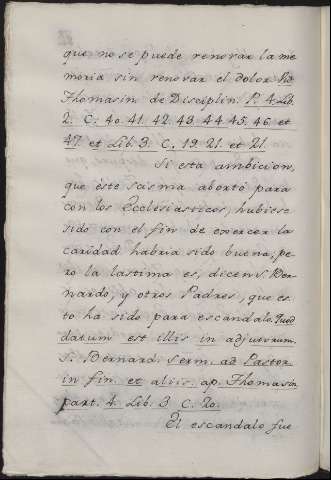 que no se puede renovar la me
moria sin renovar el dolor Vid.
Thomasin. de Disciplin. P. 4. Lib.
2. C. 40. 41. 42. 43. 44. 45. 46 et
47. et Lib. 3. C. 19. 21. et 21.
Si esta ambicion,
que este sasma abortó para
con los Ecclesiasticos, hubiese
sido con el fin de exercer la
caridad habria sido buena; pe,
ro la lastima es, dicen S. Ber-
nardo, y otros Padres, que es,
to ha sido para escandalo. Quod
datum est illis in adjutorium.
S. Bernard. Serm. ad Pastor.
in fin. et aliis. ap. Thomasin
part. 4. Lib. 3 C. 20.
El escandalo fue